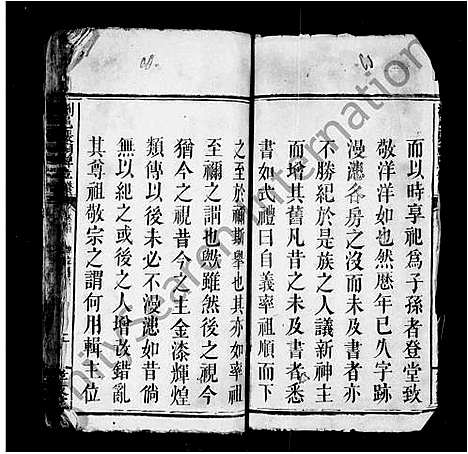 而以時享祀為子孫者登堂致
敬洋洋如也然歷年已久字跡
漫漶各房之沒而未及書者亦
不勝紀於是族之人議新神主
而增其舊凡昔之未及書者悉
書如式禮曰自義率祖順而下
之至於禰斯舉也其亦如率祖
至禰之謂也歟雖然後之視今
猶今之視昔今之主金漆輝煌
類傳以後未必不漫漶如昔倘
無以紀之或後之人增改錯亂
其尊祖敬宗之謂何用輯主位